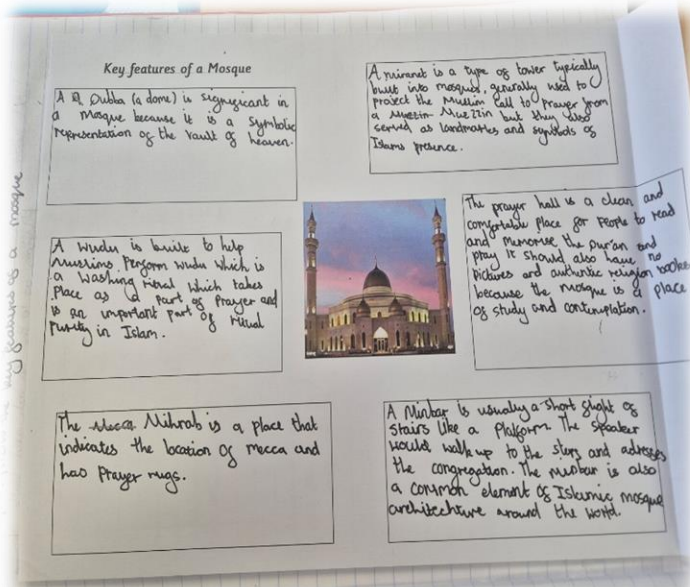 Key features of a Mosque
A Qubba (a dome) is significant in
a mosque because it is a symbolic
representation of the vault of heaven.
A miranet is a type of tower typically
built into mosques, generally used to
project the Muslim call to prayer from
a Muezzin but they also
served as landmarks and symbols of
Islams presence.
A wudu is built to help
Muslims perform wudu which is
a washing ritual which takes
place as a part of prayer and
is an important part of ritual
purity in Islam.
The prayer hall is a clean and
comfortable place for people to read
and memorise the Qur'an and
pray it should also have no
pictures and authentic religion bookes
because the mosque is a place
of study and contemplation.
The Mihrab is a place that
indicates the location of mecca and
has prayer rugs.
A Minbar is usually a short flight of
stairs like a platform. The speaker
would walk up to the steps and adresses
the congregation. The minbar is also
a common element of Islamic mosque
architechture around the world.
key features of a mosque